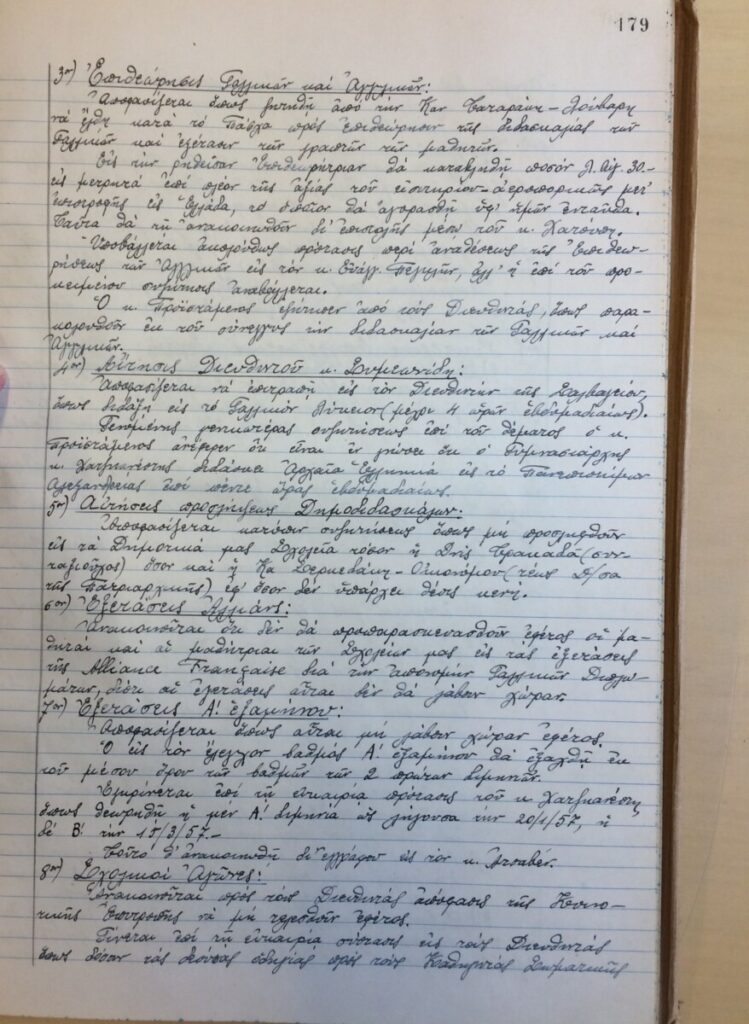 179
3ον) Ἐπιθεώρησις Γαλλικῶν καὶ Ἀγγλικῶν:
Ἀποφασίζεται ὅπως ζητηθῇ ἀπὸ τὴν Καν
νὰ ἔλθῃ κατὰ τὸ Πάσχα πρὸς ἐπιθεώρησιν τῆς διδασκαλίας τῶν
Γαλλικῶν καὶ ἐξέτασιν τῶν γραπτῶν τῶν μαθητῶν.
Εἰς τὴν ρηθεῖσαν Ἐπιθεωρήτριαν θὰ καταβληθῇ ποσὸν λ. Αἰγ. 30.-
εἰς μετρητὰ ἐπὶ πλέον τῆς ἀξίας τοῦ εἰσιτηρίου ἀεροπορικῶς μετ'
ἐπιστροφῆς εἰς Ἑλλάδα, τὸ ὁποῖον θὰ ἀγορασθῇ ὑφ' ἡμῶν ἐνταῦθα.
Ταῦτα θὰ τῇ ἀνακοινωθοῦν δι' ἐπιστολῆς μέσω τοῦ κ.
Ὑποβάλλεται ἀκολούθως πρότασις περὶ ἀναθέσεως τῆς Ἐπιθεω-
ρήσεως τῶν Ἀγγλικῶν εἰς τὸν κ. Εὐάγγ. ἀλλ' ἡ ἐπὶ τοῦ προ-
κειμένου συζήτησις ἀναβάλλεται.
Ὁ κ. Προϊστάμενος ἐζήτησεν ἀπὸ τοὺς Διευθυντάς, ὅπως παρα-
κολουθοῦν ἐκ τοῦ σύνεγγυς τὴν διδασκαλίαν τῶν Γαλλικῶν καὶ
Ἀγγλικῶν.
4ον) Αἴτησις Διευθυντοῦ κ. Συμεωνίδη:
Ἀποφασίζεται νὰ ἐπιτραπῇ εἰς τὸν Διευθυντὴν τῆς Σαλβαγείου,
ὅπως διδάξῃ εἰς τὸ Γαλλικὸν Λύκειον (μέχρι 4 ὡρῶν ἑβδομαδιαίως).
Γενομένης γενικωτέρας συζητήσεως ἐπὶ τοῦ θέματος ὁ κ.
Προϊστάμενος ἀνέφερεν ὅτι εἶναι ἐν γνώσει ὅτι ὁ Γυμνασιάρχης
κ. Χατζηανέστης διδάσκει Ἀρχαῖα Ἑλληνικὰ εἰς τὸ Πανεπιστήμιον
Ἀλεξανδρείας ἐπὶ πέντε ὥρας ἑβδομαδιαίως.
5ον) Αἰτήσεις προσλήψεως Δημοδιδασκάλων:
Ἀποφασίζεται κατόπιν συζητήσεως ὅπως μὴ προσληφθοῦν
εἰς τὰ Δημοτικά μας Σχολεῖα τόσον ἡ Δνὶς (συν-
ταξιοῦχος) ὅσον καὶ ἡ Κα - Οἰκονόμου (τέως Δ/σα
τῆς Πατριαρχικῆς) ἐφ' ὅσον δὲν ὑπάρχει θέσις κενή.
6ον) Ἐξετάσεις Ἀλλιάνς:
Ἀνακοινοῦται ὅτι δὲν θὰ προπαρασκευασθοῦν ἐφέτος οἱ μα-
θηταὶ καὶ αἱ μαθήτριαι τῶν Σχολείων μας εἰς τὰς ἐξετάσεις
τῆς Alliance Française διὰ τὴν ἀπονομὴν Γαλλικῶν Διπλω-
μάτων, διότι αἱ ἐξετάσεις αὗται δὲν θὰ λάβουν χώραν.
7ον) Ἐξετάσεις Α΄. ἑξαμήνου:
Ἀποφασίζεται ὅπως αὗται μὴ λάβουν χώραν ἐφέτος.
Ὁ εἰς τὸν ἔλεγχον βαθμὸς Α΄. ἑξαμήνου θὰ ἐξαχθῇ ἐκ
τοῦ μέσου ὅρου τῶν βαθμῶν τῶν 2 πρώτων διμηνιῶν.
Ἐγκρίνεται ἐπὶ τῇ εὐκαιρίᾳ πρότασις τοῦ κ. Χατζηανέστη,
ὅπως θεωρηθῇ ἡ μὲν Α΄. διμηνία ὡς λήγουσα τὴν 20/1/57, ἡ
δὲ Β΄. τὴν 15/3/57.-
Τοῦτο θ' ἀνακοινωθῇ δι' ἐγγράφου εἰς τὸν κ.
8ον) Σχολικοὶ Ἀγῶνες:
Ἀνακοινοῦται πρὸς τοὺς Διευθυντὰς ἀπόφασις τῆς Κοινο-
τικῆς Ἐπιτροπῆς νὰ μὴ τελεσθοῦν ἐφέτος.
Γίνεται ἐπὶ τῇ εὐκαιρίᾳ σύστασις εἰς τοὺς Διευθυντὰς
ὅπως δώσουν τὰς δεούσας ὁδηγίας πρὸς τοὺς Καθηγητὰς Σωματικῆς